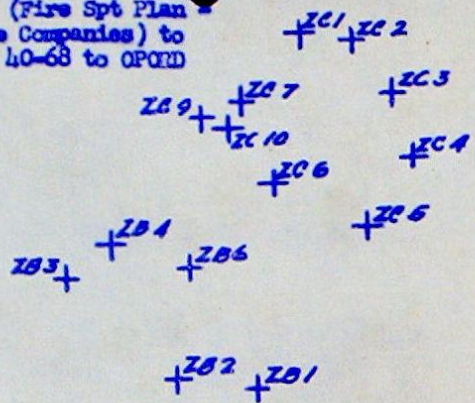 (Fire Spt Plan -
Companies) to
40-68 to OPORD
ZC1
ZC2
ZC7
ZC3
ZC9
ZC10
ZC4
ZC6
ZC5
ZB4
ZB3
ZB5
ZB2
ZB1